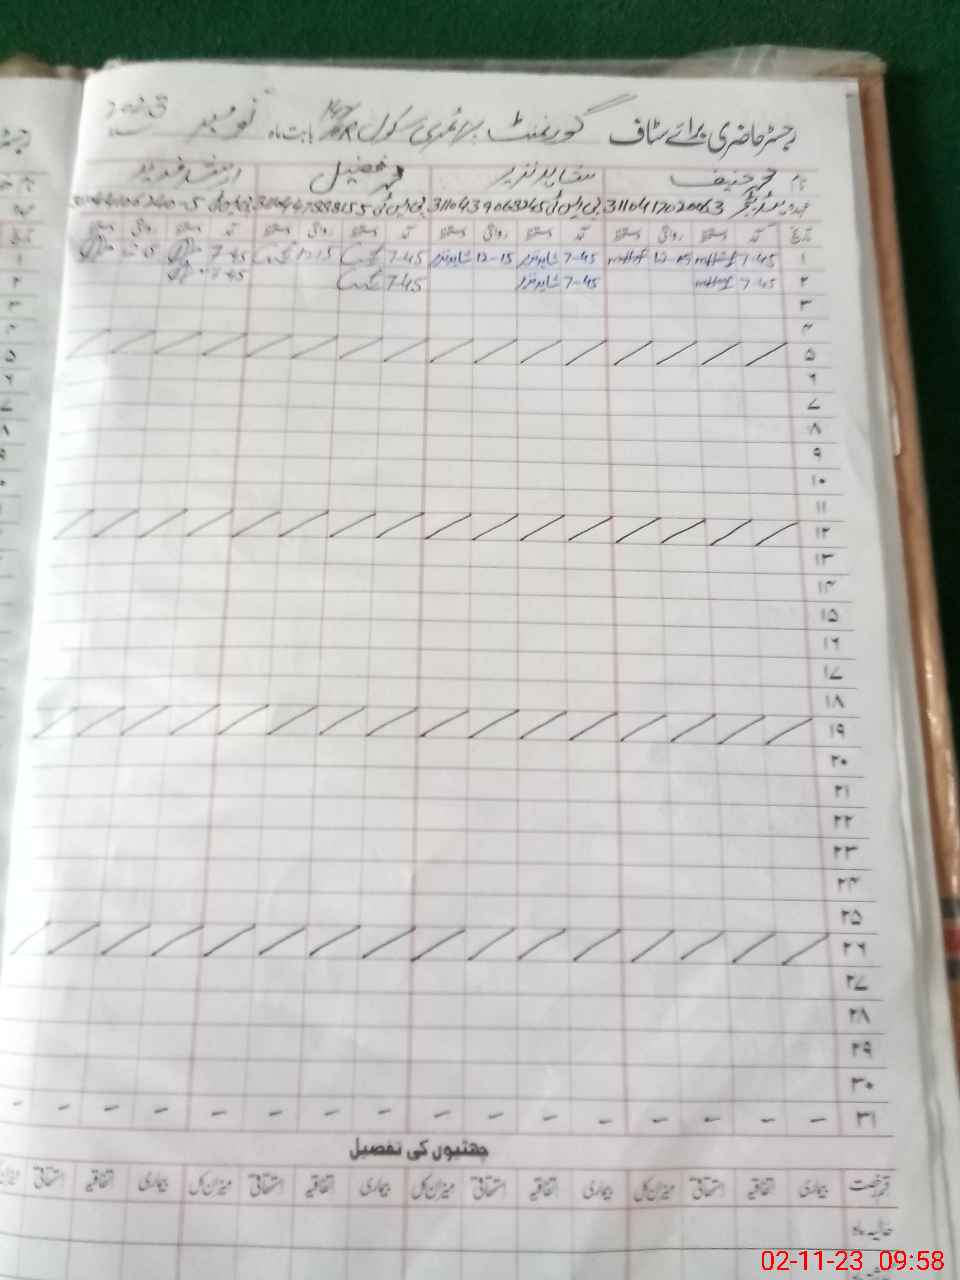 رجسٹر حاضری برائے سٹاف گورنمنٹ پرائمری سکول بابت ماہ نومبر 2023
نام محمد حنیف شاہد نذیر محمد فضیل
عہدہ 3110417020063 پی ایس ٹی 3110439068245 پی ایس ٹی
تاریخ آمد دستخط روانگی دستخط آمد دستخط روانگی دستخط آمد دستخط روانگی دستخط آمد دستخط روانگی دستخط
۱ 7-45 12-15 7-45 شاہد نذیر 12-15 شاہد نذیر 7-45 12-15 7-45
۲ 7-45 7-45 شاہد نذیر 7-45 7-45
۳
۴
۵
۶
۷
۸
۹
۱۰
۱۱
۱۲
۱۳
۱۴
۱۵
۱۶
۱۷
۱۸
۱۹
۲۰
۲۱
۲۲
۲۳
۲۴
۲۵
۲۶
۲۷
۲۸
۲۹
۳۰
۳۱ - - - - - - - - - - - - - - - -
چھٹیوں کی تفصیل
قسم رخصت بیماری اتفاقیہ استحقاقی میزان کل بیماری اتفاقیہ استحقاقی میزان کل بیماری اتفاقیہ استحقاقی میزان کل بیماری اتفاقیہ استحقاقی میزان
حالیہ ماہ
02-11-23 09:58